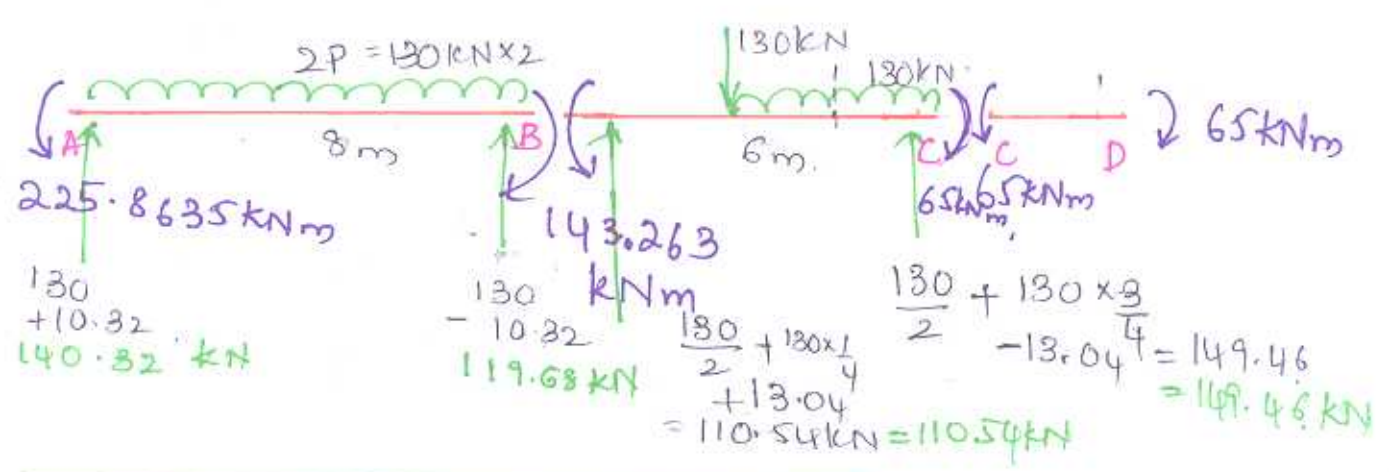 2P = 130KN×2
130KN
130KN
A
B
C
C
D
8m
6m.
65kNm
65kNm
65kNm
225.8635kNm
143.263
kNm
130
+10.32
140.32 kN
130
- 10.32
119.68 kN
130/2 + 130×1/4
+13.04
= 110.54KN = 110.54kN
130/2 + 130×3/4
-13.04 = 149.46
= 149.46 kN